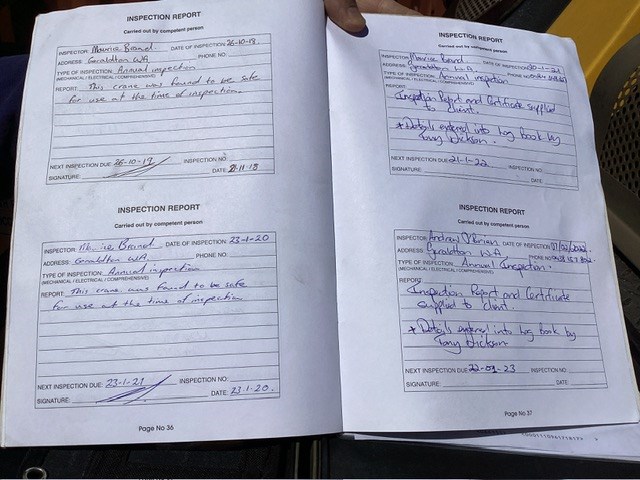 INSPECTION REPORT
Carried out by competent person
INSPECTOR: Maurice Brand DATE OF INSPECTION: 26-10-18
ADDRESS: Geraldton WA PHONE NO:
TYPE OF INSPECTION: Annual inspection
(MECHANICAL / ELECTRICAL / COMPREHENSIVE)
REPORT: This crane was found to be safe
for use at the time of inspection.
NEXT INSPECTION DUE: 26-10-19 INSPECTION NO:
SIGNATURE: DATE: 2-11-18
INSPECTION REPORT
Carried out by competent person
INSPECTOR: Brand DATE OF INSPECTION: 23-1-20
ADDRESS: Geraldton WA PHONE NO:
TYPE OF INSPECTION: Annual inspection
(MECHANICAL / ELECTRICAL / COMPREHENSIVE)
REPORT: This crane was found to be safe
for use at the time of inspection
NEXT INSPECTION DUE: 23-1-21 INSPECTION NO:
SIGNATURE: DATE: 23-1-20.
Page No 36
INSPECTION REPORT
Carried out by competent person
INSPECTOR: Maurice Brand DATE OF INSPECTION: 20-1-21
ADDRESS: Geraldton WA PHONE NO:
TYPE OF INSPECTION: Annual inspection
(MECHANICAL / ELECTRICAL / COMPREHENSIVE)
REPORT: Inspection Report and Certificate supplied
to client.
* Details entered into log book by
Tony Dickson.
NEXT INSPECTION DUE: 21-1-22 INSPECTION NO:
SIGNATURE: DATE:
INSPECTION REPORT
Carried out by competent person
INSPECTOR: Andrew DATE OF INSPECTION:
ADDRESS: Geraldton WA PHONE NO:
TYPE OF INSPECTION: Annual Inspection.
(MECHANICAL / ELECTRICAL / COMPREHENSIVE)
REPORT: Inspection Report and Certificate
supplied to client.
* Details entered into log book by
Tony Dickson
NEXT INSPECTION DUE: 22-02-23 INSPECTION NO:
SIGNATURE: DATE:
Page No 37